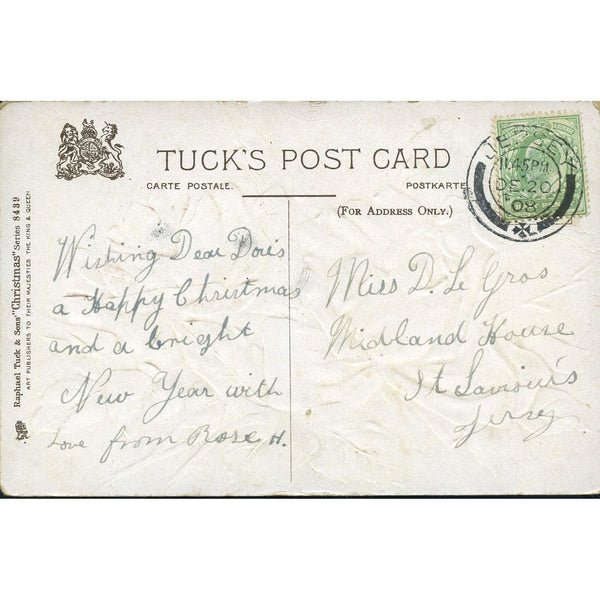 TUCK'S POST CARD
CARTE POSTALE.
POSTKARTE
(FOR ADDRESS ONLY.)
JERSEY
11.45PM
DE 20
08
Wishing Dear Doris
a Happy Christmas
and a bright
New Year with
Love from Rose H.
Miss D. Le Gros
Midland House
St Saviour's
Jersey
Raphael Tuck & Sons' "Christmas" Series 8439
ART PUBLISHERS TO THEIR MAJESTIES THE KING & QUEEN